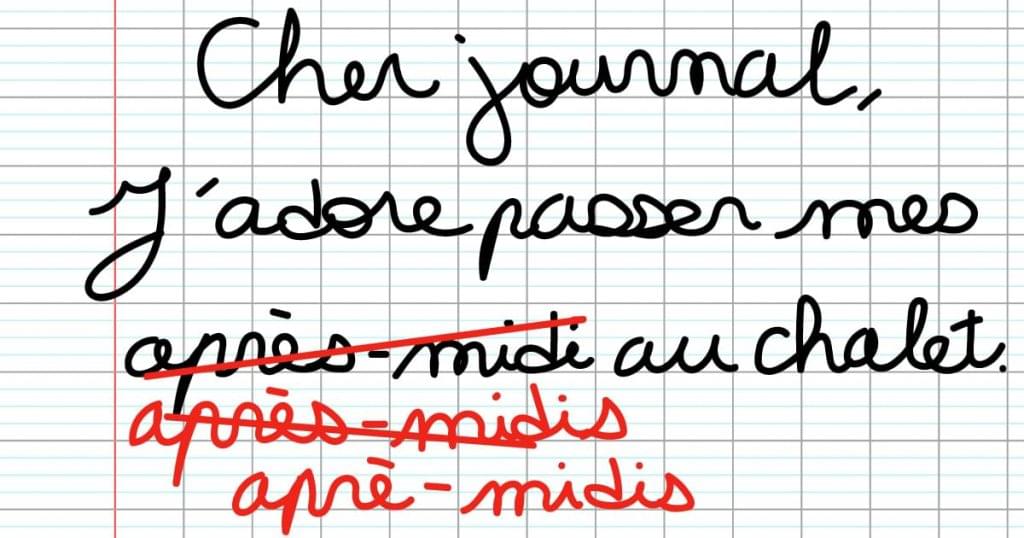 Cher journal,
J'adore passer mes
après-midi au chalet.
après-midis
aprè-midis